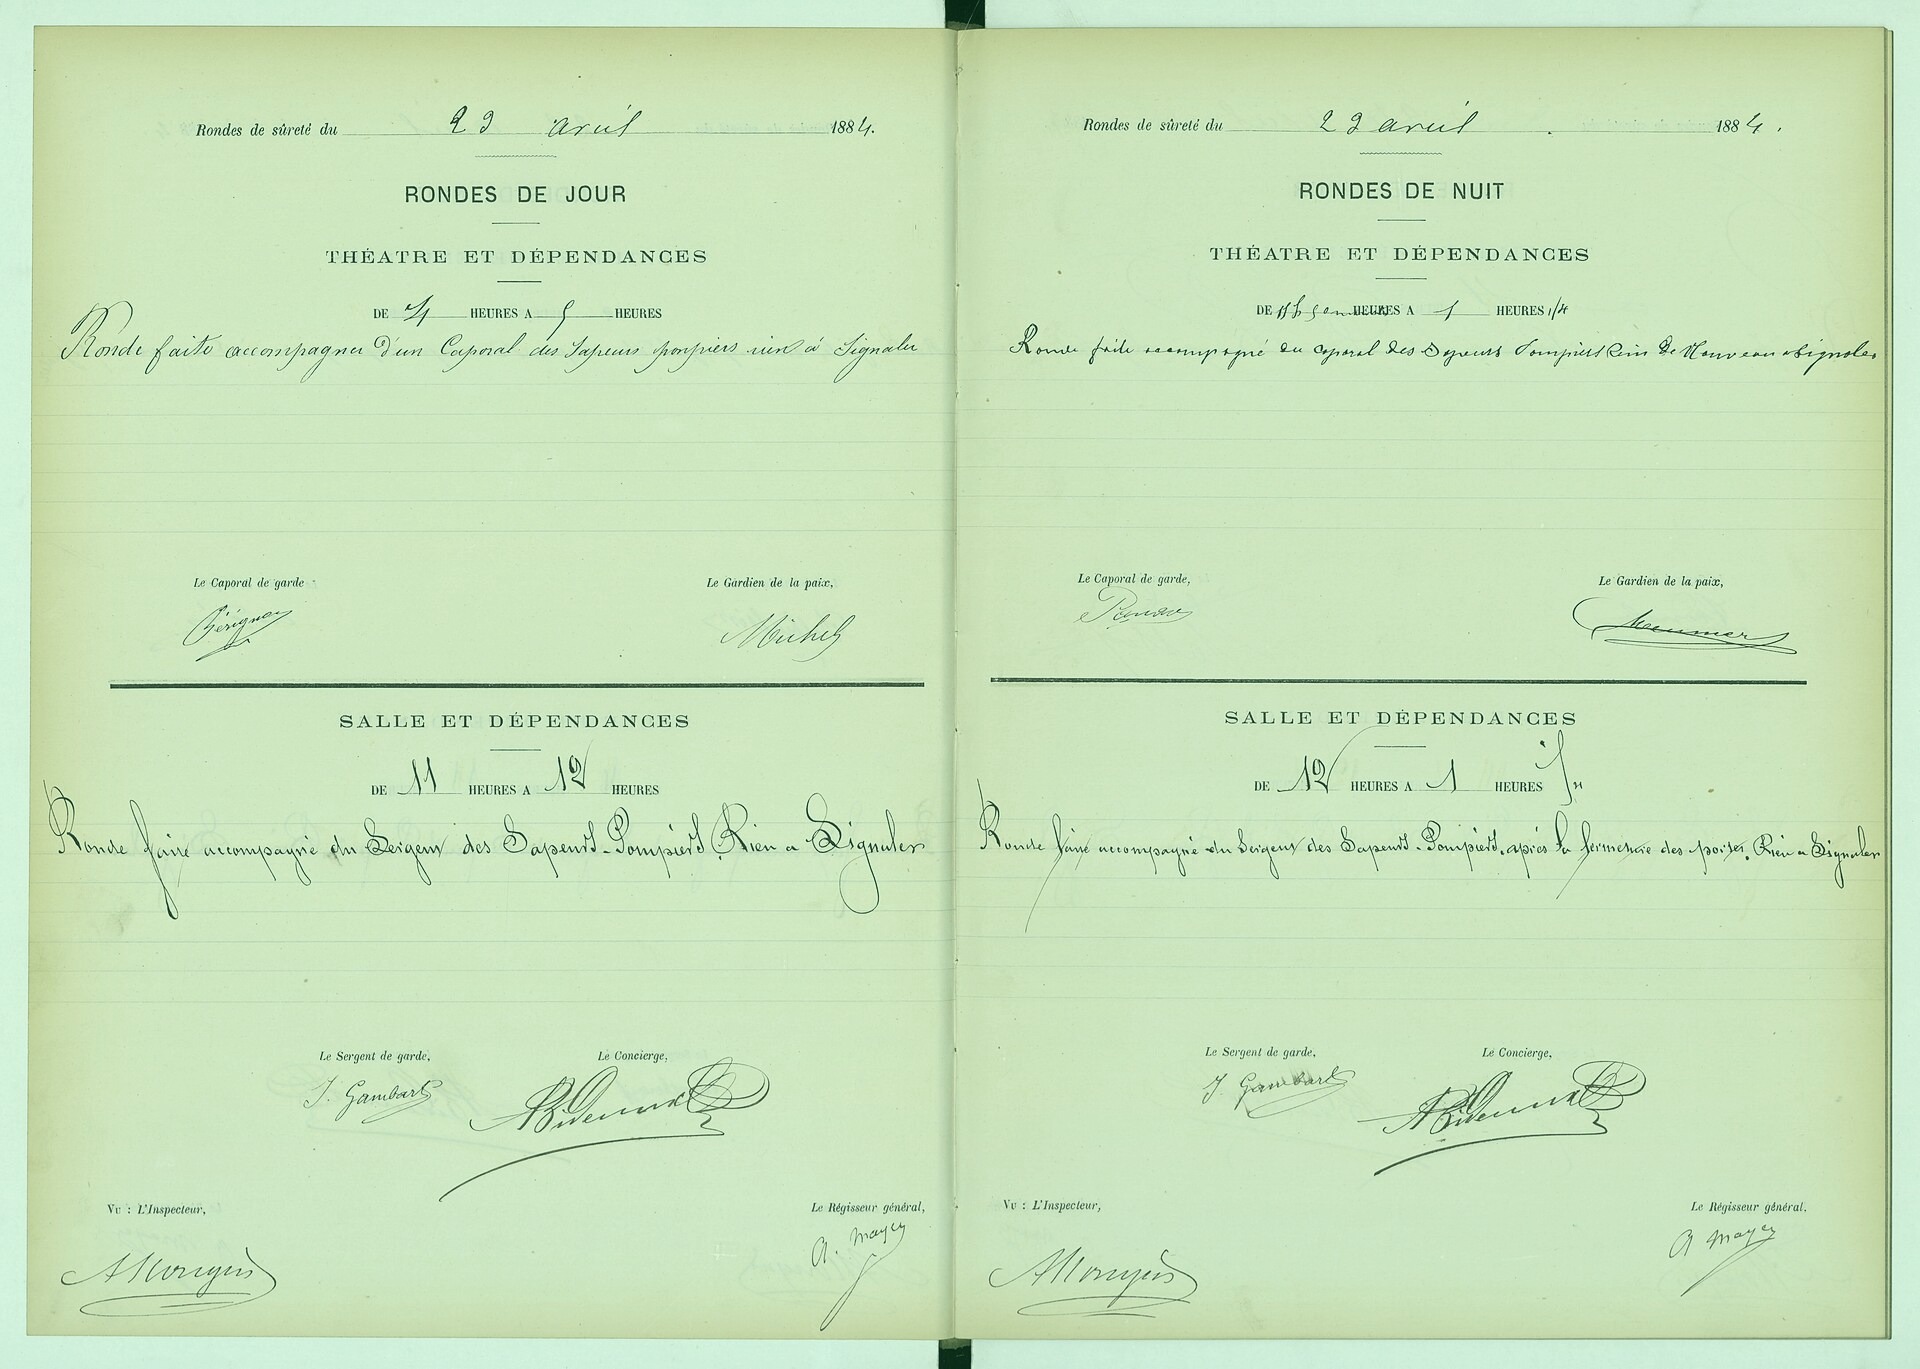 Rondes de sûreté du 23 avril 1884.
RONDES DE JOUR
THÉATRE ET DÉPENDANCES
DE 4 HEURES A 5 HEURES
Ronde faite accompagner d'un Caporal des Sapeurs pompiers rien à Signaler
Le Caporal de garde
Le Gardien de la paix,
Michel
SALLE ET DÉPENDANCES
DE 11 HEURES A 12 HEURES
Ronde faite accompagné du Sergent des Sapeurs-Pompiers, Rien a Signaler
Le Sergent de garde,
Le Concierge,
J. Gambart
Vu : L'Inspecteur,
Le Régisseur général,
A. Mayer
Rondes de sûreté du 23 avril 1884.
RONDES DE NUIT
THÉATRE ET DÉPENDANCES
DE HEURES A 1 HEURES 1/4
Ronde faite accompagné du caporal des Sapeurs Pompiers Rien De Nouveau a Signaler
Le Caporal de garde,
Le Gardien de la paix,
SALLE ET DÉPENDANCES
DE 12 HEURES A 1 HEURES
Ronde faite accompagné du Sergent des Sapeurs-Pompiers, après la fermeture des portes, Rien a Signaler
Le Sergent de garde,
Le Concierge,
J. Gambart
Vu : L'Inspecteur,
Le Régisseur général.
A Mayer